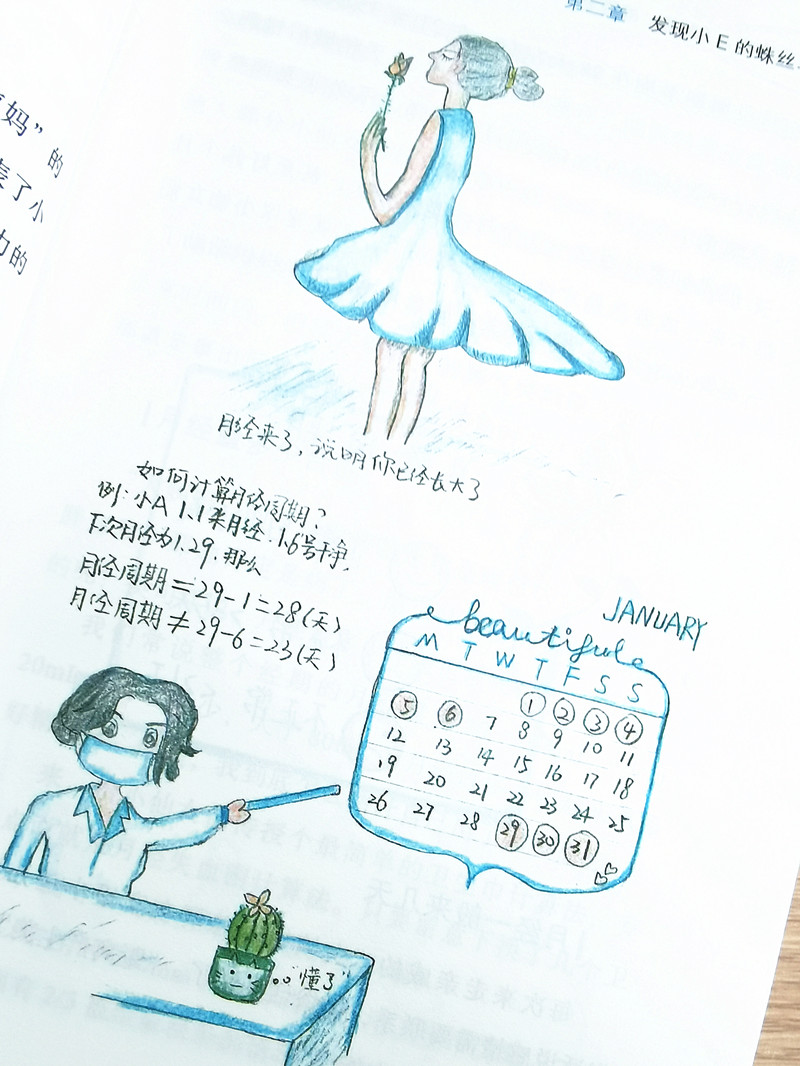 第二章 发现小E的蛛丝
妈”的
表了小
力的
月经来了,说明你已经长大了
如何计算月经周期?
例:小A 1.1来月经.1.6号干净,
下次月经为1.29.那么
月经周期=29-1=28(天)
月经周期≠29-6=23(天)
JANUARY
beautifule
M T W T F S S
1 2 3 4
5 6 7 8 9 10 11
12 13 14 15 16 17 18
19 20 21 22 23 24 25
26 27 28 29 30 31
“懂了”